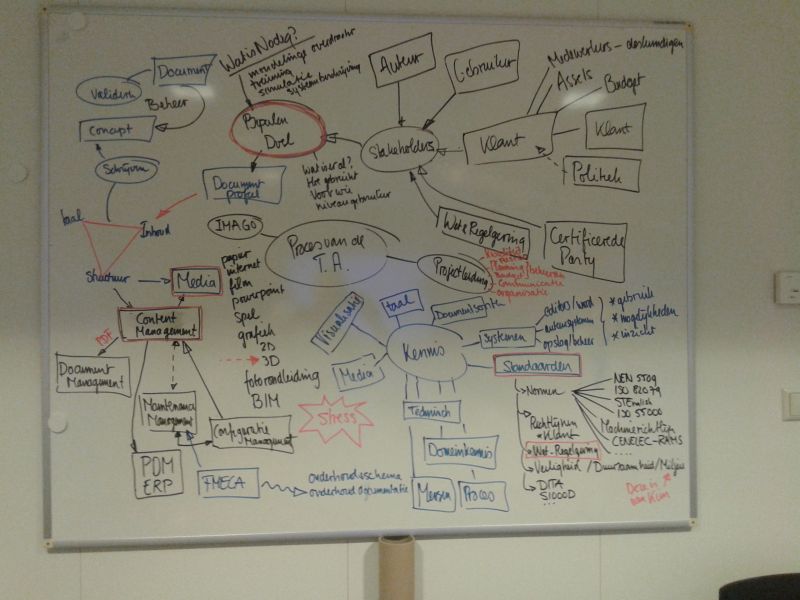 Document
Valideren
Beheer
Concept
Schrijven
Wat is Nodig?
mondelinge overdracht
training
simulatie
systeembeschrijving
Bepalen
Doel
Document
Wat is er al?
Hoe gebruikt
Voor wie
niveau gebruiker
Auteur
Gebruiker
Stakeholders
Klant
Medewerkers - deskundigen
Assets
Budget
Klant
Politiek
Wet & Regelgeving
Certificerende
Party
taal
Inhoud
Structuur
Media
IMAGO
Proces van de
T.A.
Projectleiding
kwaliteit
planning/beheersen
budget
communicatie
organisatie
papier
internet
film
powerpoint
spel
grafisch
2D
3D
fotorondleiding
BIM
Content
Management
PDF
Document
Management
Maintenance
Management
Configuratie
Management
PDM
ERP
FMECA
onderhoudsschema
onderhoud documentatie
Stress
Visualisatie
taal
Documentsoorten
Kennis
Media
Systemen
editors/word
auteursystemen
opslag/beheer
* gebruik
* mogelijkheden
* inzicht
Standaarden
Technisch
Domeinkennis
Mensen
Proces
Normen
NEN 5509
ISO 82079
STEnglish
ISO 55000
Machinerichtlijn
CENELEC-RAMS
....
Richtlijnen
* Klant
* Wet-Regelgeving
Veiligheid / Duurzaamheid / Milieu
DITA
S1000D
...